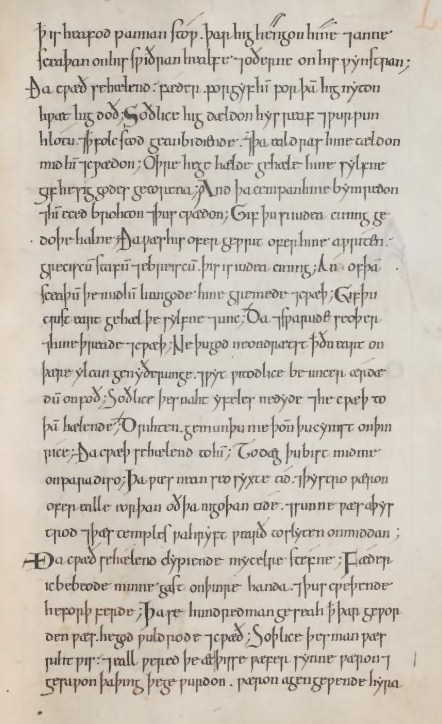 þ is heafod pannan stop. þar hig hengon hine ⁊ anne
sceaþan on his swiðran healfe ⁊ oðerne on his wynstran;
Ða cwæð se hælend. fæder. forgyf hī for þā hig nyton
hwæt hig doð; Soðlice hig dældon hys reaf ⁊ wurpun
hlotu. ⁊ þ folc stod geanbidiende. ⁊ þa ealdras hine tældon
mid hī ⁊ cwædon; Oþre he ge hælde gehæle hine sylfne
gif he sig godes gecorena; And þa cempan hine bysmredon
⁊ hī eced brohton ⁊ þus cwædon; Gif þu si iudea cining ge
do þe halne; Ða wæs his ofer gewrit ofer hine awriten.
greciscū stafū ⁊ ebreiscū. þis is iudea cining; An of þā
sceaþū þe mid hī hangode hine gremede ⁊ cwæþ; Gif þu
crist eart gehæl þe sylfne ⁊ unc; Ða ⁊swarude se oþer
⁊ hine þreade ⁊ cwæþ; Ne þu god ne ondrætst þ ðu eart on
þære ylcan genyðerunge. ⁊ wyt witodlice be uncer ærdæ
dū onfoð; Soðlice þes naht yfeles ne dyde ⁊ he cwæþ to
þā hælende; Drihten. gemun þu me þoñ þu cymst on þin
rice; Ða cwæþ se hælend to hī; To dæg þu bist mid me
on paradiso; Þa wæs nean seo syxte tid. ⁊ þystro wæron
ofer ealle eorþan oð þa nigoþan tide. ⁊ sunne wæs aþys
trod ⁊ þæs temples wahryft wearð tosliten on middan;
Ða cwæð se hælend clypiende mycelre stefne; Fæder
ic bebeode minne gast on þinre handa. ⁊ þus cweþende
he forþ ferde; Þa se hundred man geseah þ þar gewor
den wæs. he god wuldrode ⁊ cwæð; Soþlice þes man wæs
riht wis. ⁊ eall wered þe æt þisse wæfer synne wæron ⁊
gesawon þa þing þe gewurdon. wæron agen gewende hyra